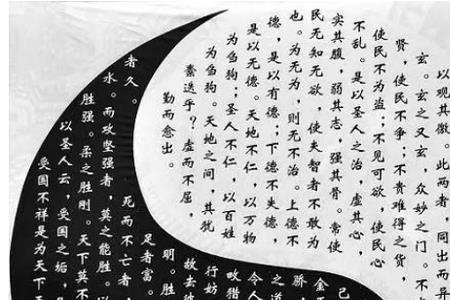 以观其徼。此两者，同出而异
玄。玄之又玄，众妙之门。不
贤，使民不争；不贵难得之货，
使民不为盗；不见可欲，使民心
不乱。是以圣人之治，虚其心，
实其腹，弱其志，强其骨。常使
民无知无欲，使夫智者不敢为
也。为无为，则无不治。上德不
德，是以有德；下德不失德，
是以无德。天地不仁，以万物
为刍狗；圣人不仁，以百姓
为刍狗。天地之间，其犹
迭乎？虚而不屈，
勤而愈出。
己
金
骄
之道
令人
畋猎
行妨
故去彼
明。胜
足者富。
死而不亡者，
者久。
水。而攻坚强者，莫之能胜。以
胜强。柔之胜刚。天下莫不
以圣人云，受国之垢，是
受国不祥是为天下